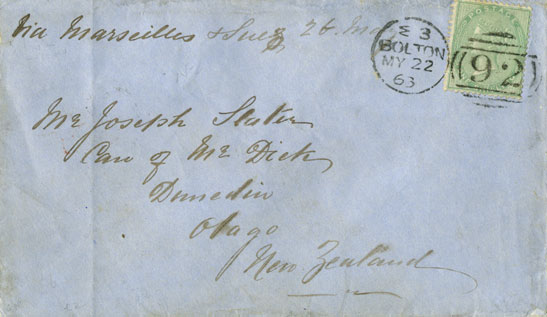 Via Marseilles & Suez 26. Ma
Σ 3
BOLTON
MY 22
63
POSTAGE
92
Mr Joseph Slater
Care of Mr Dick
Dunedin
Otago
New Zealand